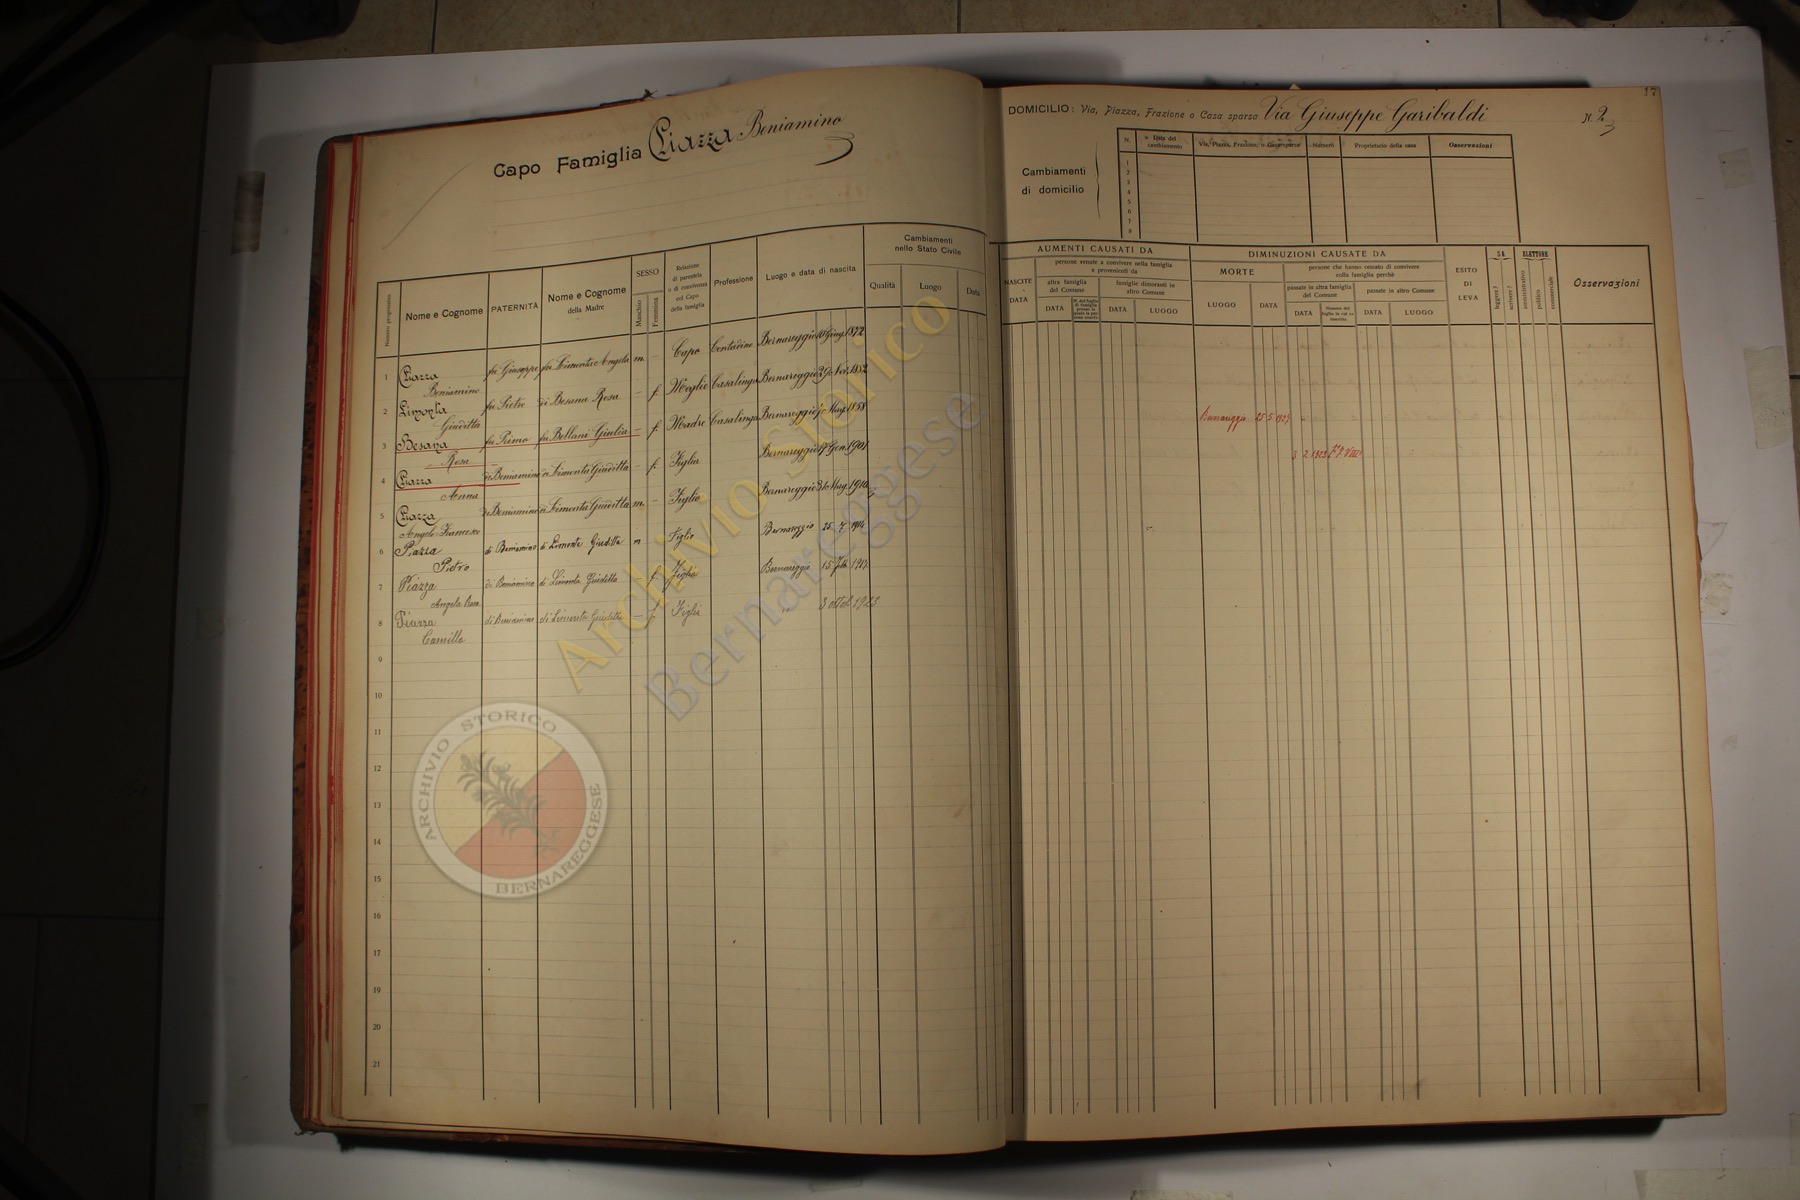 17
Capo Famiglia Piazza Beniamino
DOMICILIO: Via, Piazza, Frazione o Casa sparsa Via Giuseppe Garibaldi N. 2
Cambiamenti di domicilio
N. Data del cambiamento Via, Piazza, Frazione, o Casa sparsa Numero Proprietario della casa Osservazioni
1
2
3
4
5
6
7
8
Numero progressivo
Nome e Cognome
PATERNITÀ
Nome e Cognome della Madre
SESSO
Maschio
Femmina
Relazione di parentela o di convivenza col Capo della famiglia
Professione
Luogo e data di nascita
Cambiamenti nello Stato Civile
Qualità
Luogo
Data
AUMENTI CAUSATI DA
NASCITE
DATA
persone venute a convivere nella famiglia e provenienti da
altra famiglia del Comune
famiglie dimoranti in altro Comune
DATA
DATA
LUOGO
DIMINUZIONI CAUSATE DA
MORTE
LUOGO
DATA
persone che hanno cessato di convivere colla famiglia perchè
passate in altra famiglia del Comune
passate in altro Comune
DATA
DATA
LUOGO
ESITO DI LEVA
SA
leggere?
scrivere?
ELETTORE
amministrativo
politico
commerciale
Osservazioni
1 Piazza Beniamino fu Giuseppe fu Limonta Angela m. – Capo Contadino Bernareggio Giug. 1872
2 Limonta Giuditta fu Pietro di Besana Rosa – f. Moglie Casalinga Bernareggio Nov. 1882
3 Besana Rosa fu Primo fu Bellani Giulia – f. Madre Casalinga Bernareggio Mag. 1858 Bernareggio 25-5-
4 Piazza Anna di Beniamino di Limonta Giuditta – f. Figlia Bernareggio Gen. 1901 3 2
5 Piazza Angelo Francesco di Beniamino di Limonta Giuditta m. – Figlio Bernareggio 31 Mag. 1910
6 Piazza Pietro di Beniamino di Limonta Giuditta m Figlio Bernareggio 25 7
7 Piazza Angela Rosa di Beniamino di Limonta Giuditta f. Figlia Bernareggio 15 Feb.
8 Piazza Camilla di Beniamino di Limonta Giuditta – f. Figlia " 3 ottob. 1923
9
10
11
12
13
14
15
16
17
18
19
20
21
Archivio Storico
Bernareggese
ARCHIVIO STORICO
BERNAREGGESE